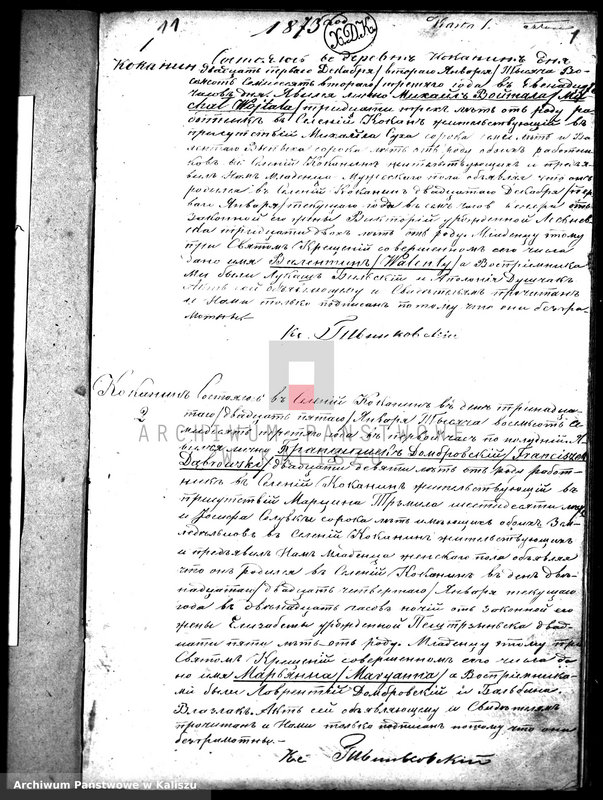 11 1873 год Karta 1. 1
1
Коканин Состоялось въ деревне Коканинъ дня
двадцать перваго Декабря/втораго Января/Тысяча Во-
семьсотъ семьдесятъ втораго/третьяго года въ
часовъ дня. Явился лично Михаилъ Войтала/Mi-
chał Wojtala/тридцати трехъ летъ отъ роду ра-
ботникъ въ Селеніи Коканин жительствующій въ
присутствіи Михайла Суха сорока семи летъ и Ва-
лентаго сорока летъ отъ роду обоихъ работни-
ковъ въ Селеніи Коканинъ жительствующихъ и предъя-
вилъ Намъ Младенца Мужескаго пола объявляя что онъ
родился въ Селеніи Коканинъ двадцатаго Декабря/пер-
ваго Января/текущаго года въ семь часовъ вечера отъ
законной его жены Викторіи урожденной
тридцати двухъ летъ отъ роду. Младенцу этому
при Святомъ Крещеніи совершенномъ сего числа
дано имя Валентинъ/Walenty/а Воспріемника-
ми были Лукашъ и Аполонія Душчакъ
Актъ сей объявляющему и Свидетелямъ прочитанъ
и Нами только подписанъ потому что они безгра-
мотны.
Кс.
Коканинъ Состоялось въ Селеніи Коканинъ въ день тринадца-
2 таго/двадцать пятаго/Января Тысяча восемьсотъ Се-
мьдесятъ третьяго года въ первомъ часе по полудни. Я-
вился лично Францишекъ Домбровскій/Franciszek
Dąbrowski/двадцати девяти летъ отъ роду работ-
никъ въ Селеніи Коканинъ жительствующій въ
присутствіи Марцина шестидесяти
и Іосифа сорока летъ имеющихъ обоихъ Зем-
ледельцовъ въ Селеніи Коканинъ жительствующихъ
и предъявилъ Намъ Младенца женскаго пола объявляя
что онъ родился въ Селеніи Коканинъ въ день две-
надцатаго/двадцать четвертаго/Января текущаго
года въ двенадцать часовъ ночи отъ законной его
жены Елизабеты урожденной двад-
цати пяти летъ отъ роду. Младенцу этому при
Святомъ Крещеніи совершенномъ сего числа да-
но имя Марьянна/Maryanna/а Воспріемника-
ми были Лаврентій Домбровскій и Бальбина
Актъ сей объявляющему и Свидетелямъ
прочитанъ и Нами только подписанъ потому что они
безграмотны.
Кс.
ARCHIWUM PAŃSTWOWE
Archiwum Państwowe w Kaliszu